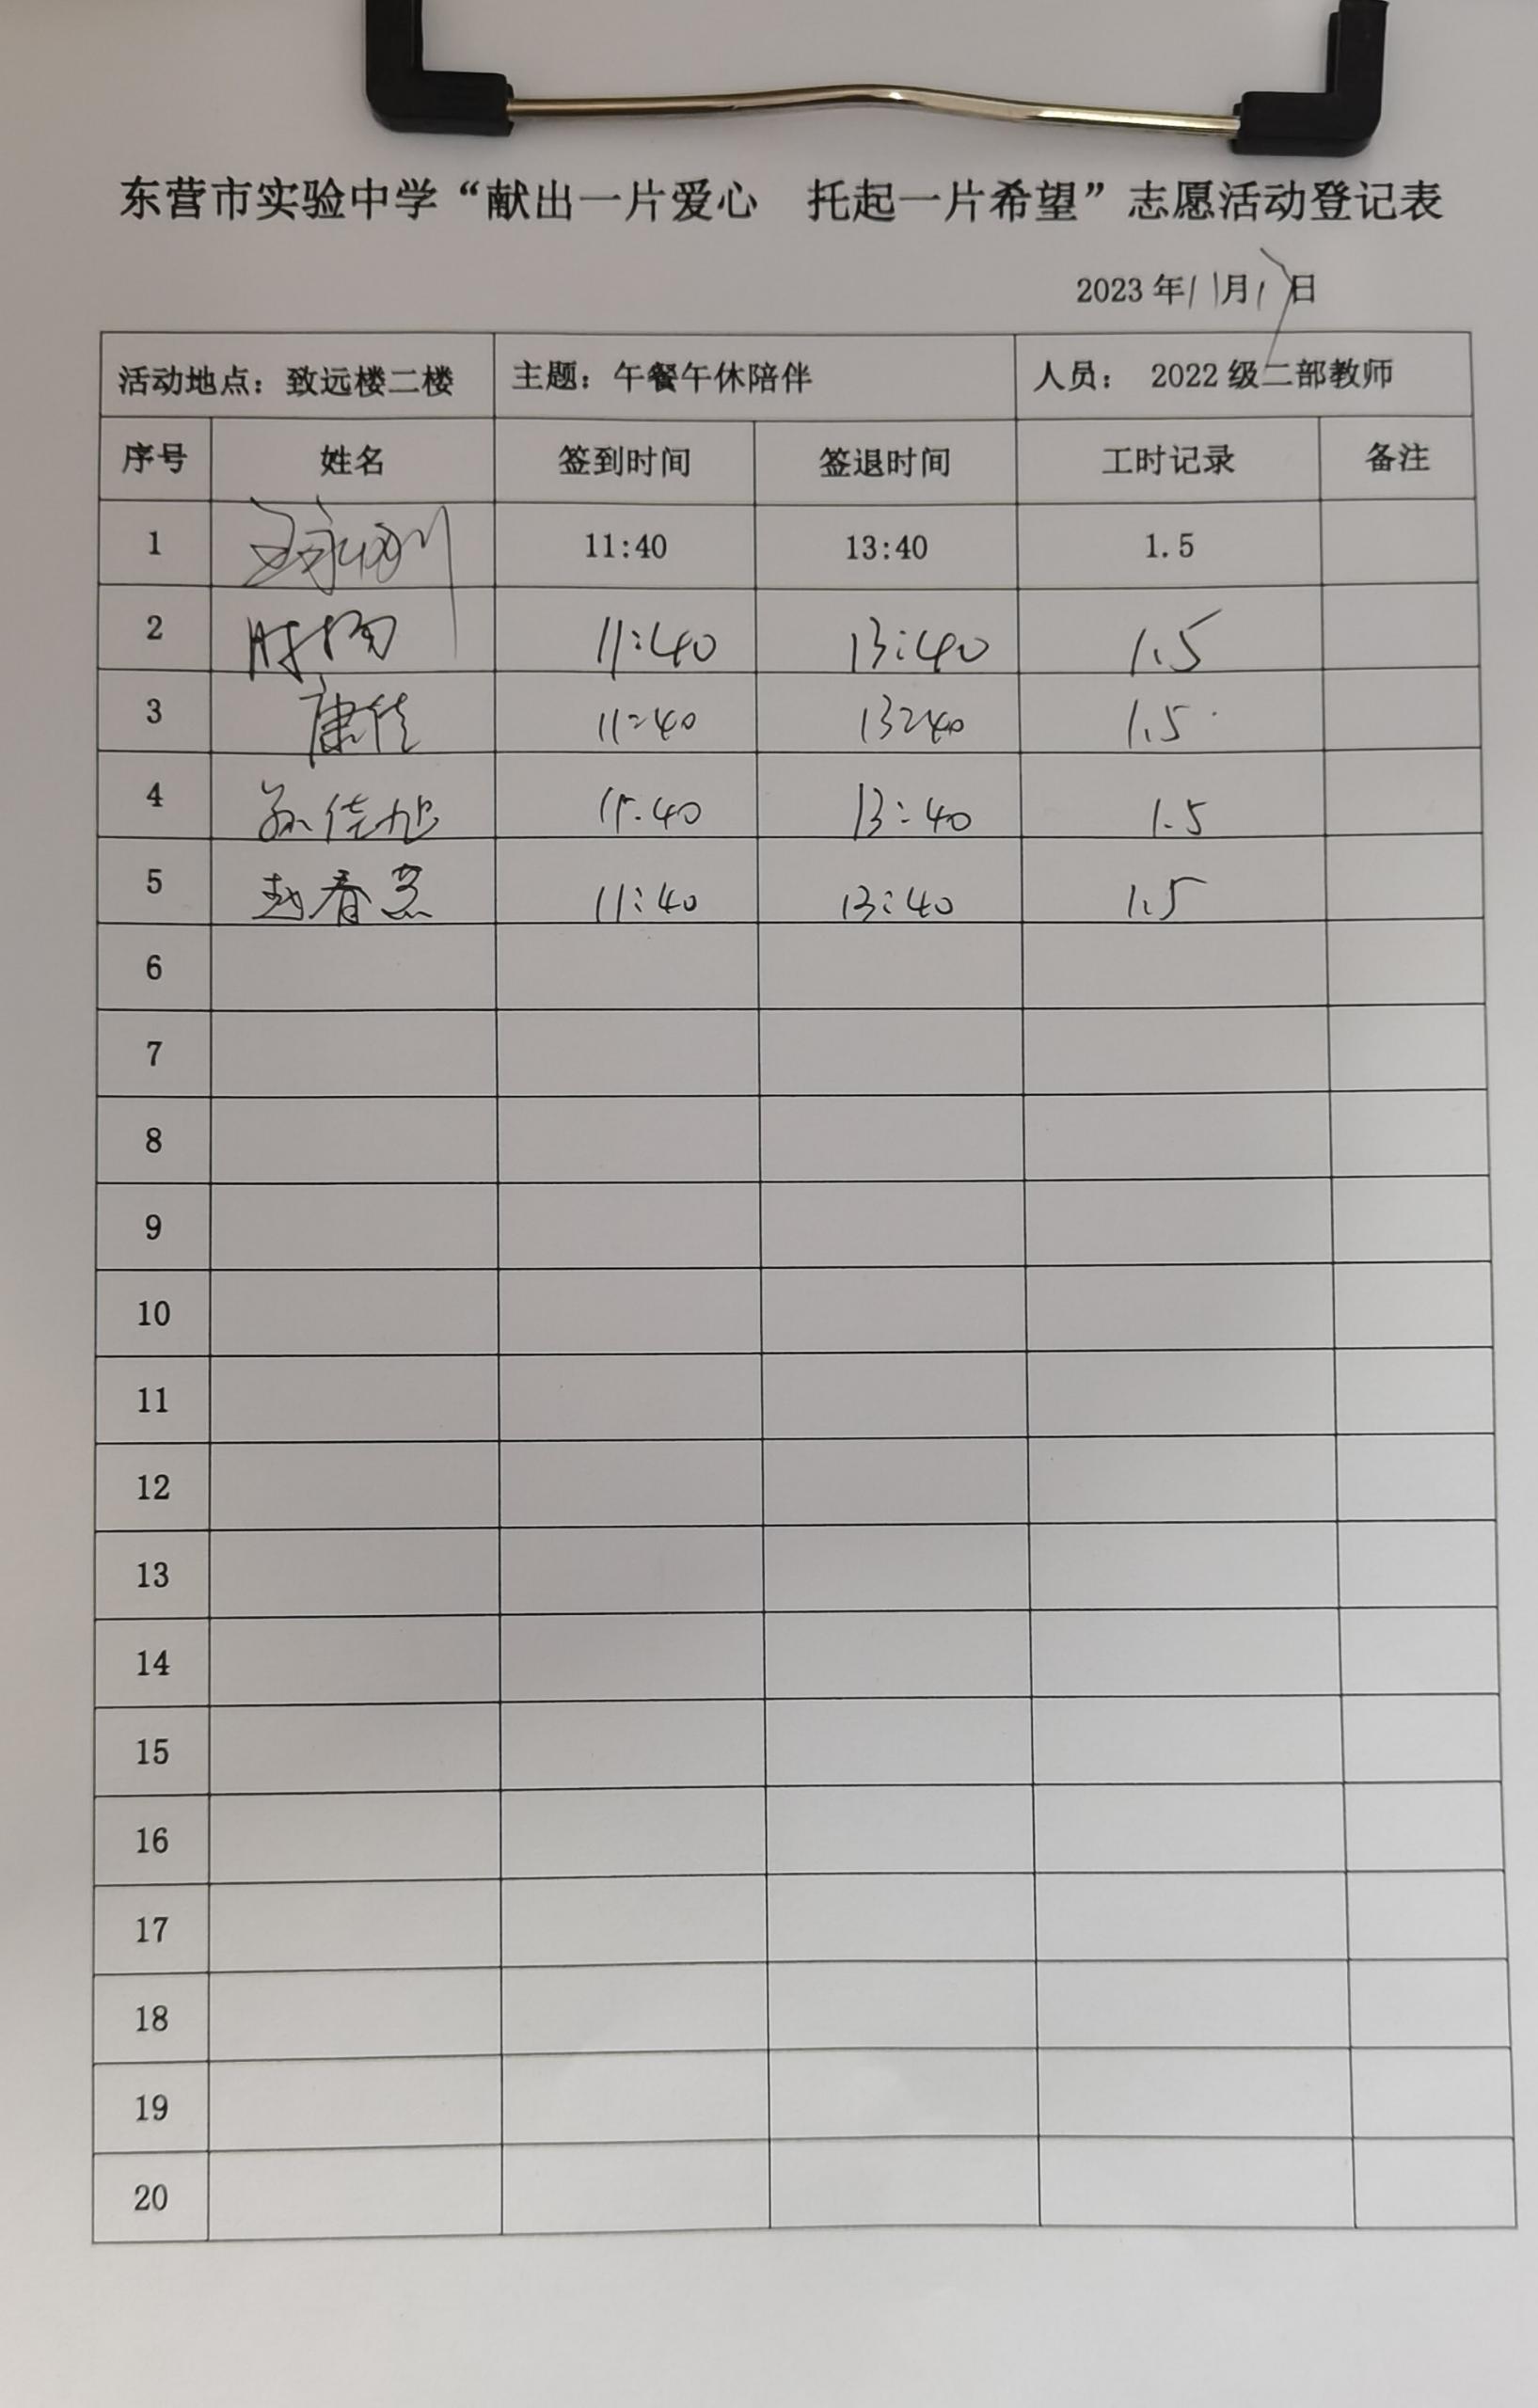 东营市实验中学“献出一片爱心 托起一片希望”志愿活动登记表
2023年11月17日
活动地点：致远楼二楼 主题：午餐午休陪伴 人员： 2022级二部教师
序号 姓名 签到时间 签退时间 工时记录 备注
1 11:40 13:40 1.5
2 11:40 13:40 1.5
3 康佳 11:40 13:40 1.5
4 孙佳旭 11:40 13:40 1.5
5 赵春燕 11:40 13:40 1.5
6
7
8
9
10
11
12
13
14
15
16
17
18
19
20